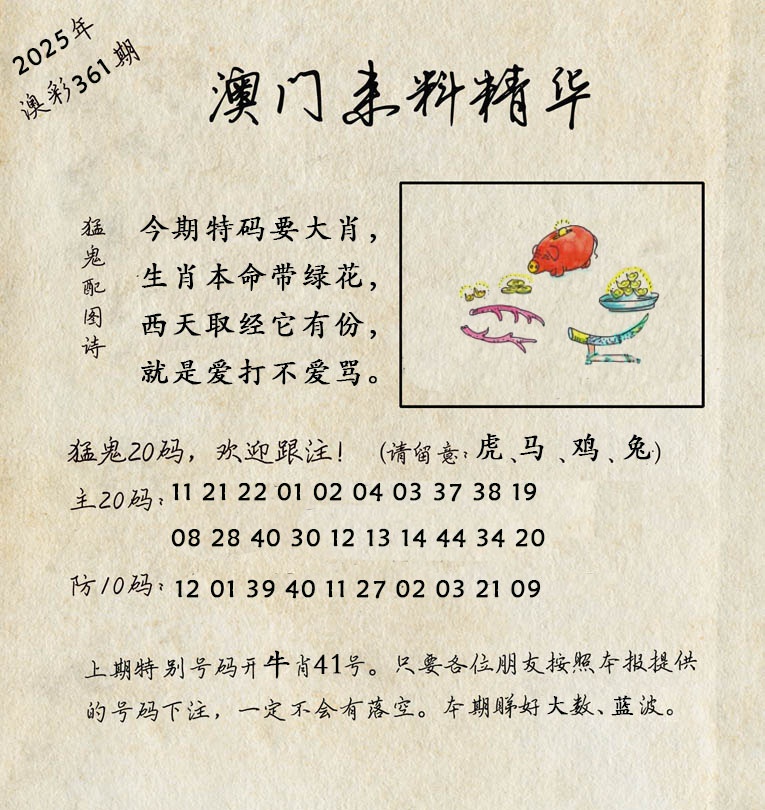 2025年
澳彩361期
澳门来料精华
猛鬼配图诗
今期特码要大肖，
生肖本命带绿花，
西天取经它有份，
就是爱打不爱骂。
猛鬼20码，欢迎跟注！（请留意：虎、马、鸡、兔）
主20码：11 21 22 01 02 04 03 37 38 19
08 28 40 30 12 13 14 44 34 20
防10码：12 01 39 40 11 27 02 03 21 09
上期特别号码开牛肖41号。只要各位朋友按照本报提供
的号码下注，一定不会有落空。本期睇好大数、蓝波。